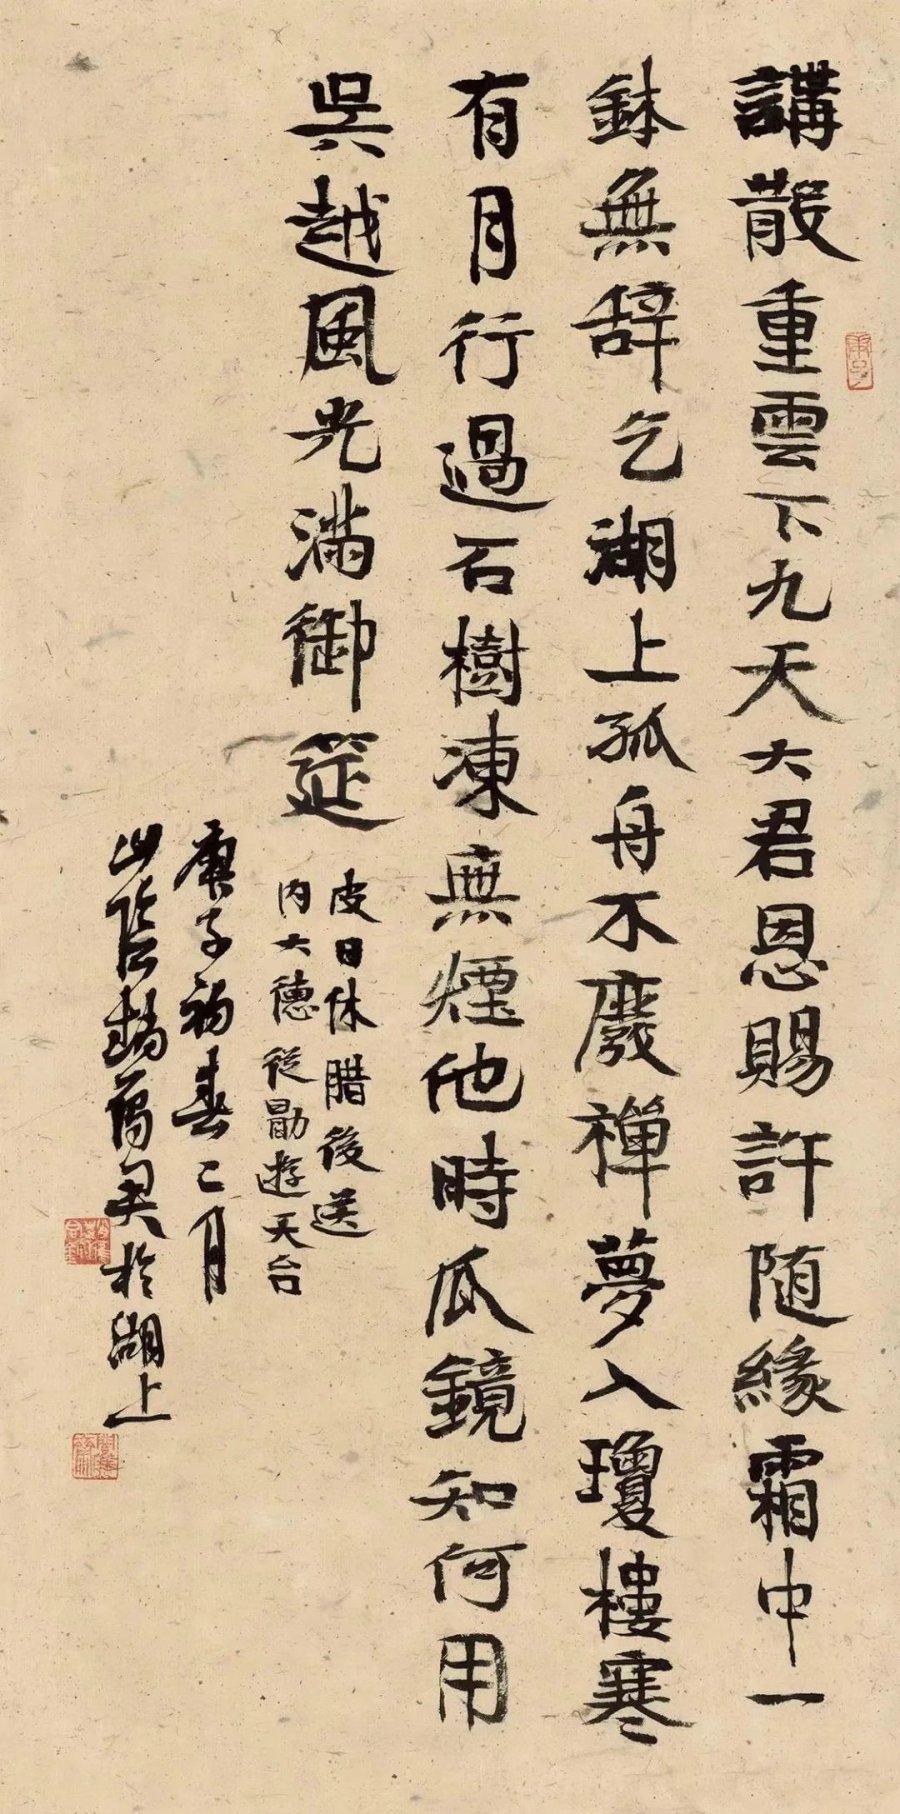 講散重雲下九天大君恩賜許隨緣霜中一
鉢無辞乞湖上孤舟不廢禪夢入瓊樓寒
有月行過石樹凍無煙他時瓜鏡知何用
吳越風光滿御筵
皮日休腊後送
内大德從勗遊天台
庚子初春二月
山陰於湖上